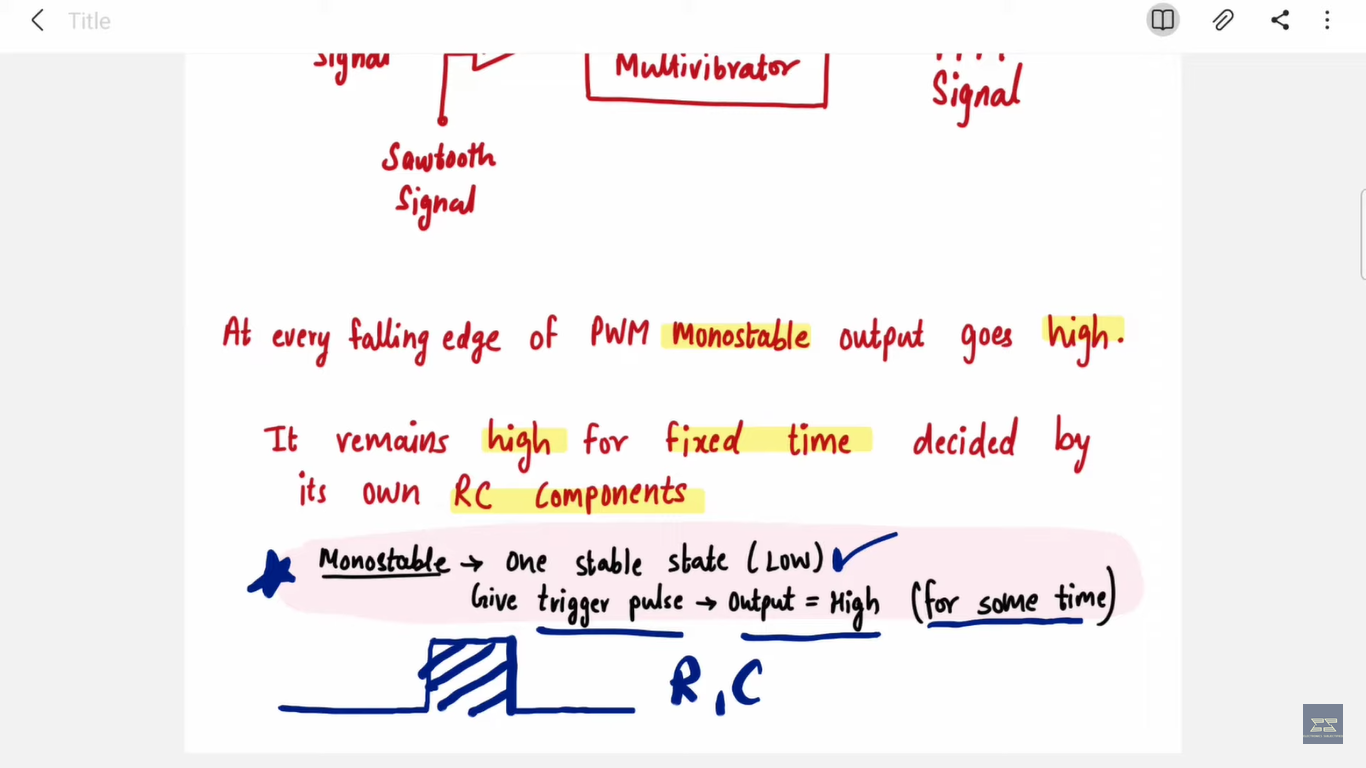 Title
Signal
Multivibrator
Signal
Sawtooth
Signal
At every falling edge of PWM Monostable output goes high.
It remains high for fixed time decided by
its own RC Components
Monostable → One stable state (Low)
Give trigger pulse → Output = High (for some time)
R, C